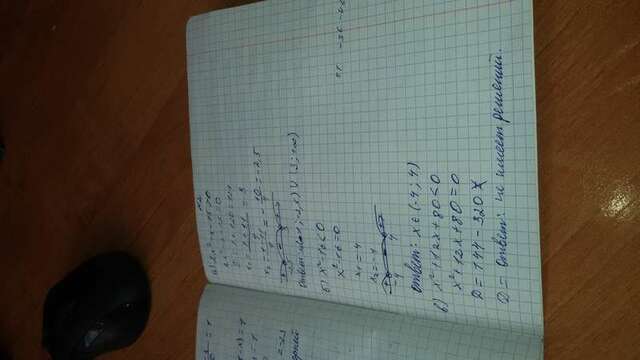 а) 2x² - x - 15 > 0
2x² - x - 15 = 0
D = 1 + 120 = 121
x₁ = (1 + 11)/4 = 3
x₂ = (1 - 11)/4 = -10/4 = -2,5
-2,5 3
Ответ: (-∞; -2,5) ∪ (3; +∞)
б) x² - 16 < 0
x² - 16 = 0
x₁ = 4
x₂ = -4
-4 4
Ответ: x ∈ (-4; 4)
в) x² + 12x + 80 < 0
x² + 12x + 80 = 0
D = 144 - 320
D = Ответ: не имеет решений.